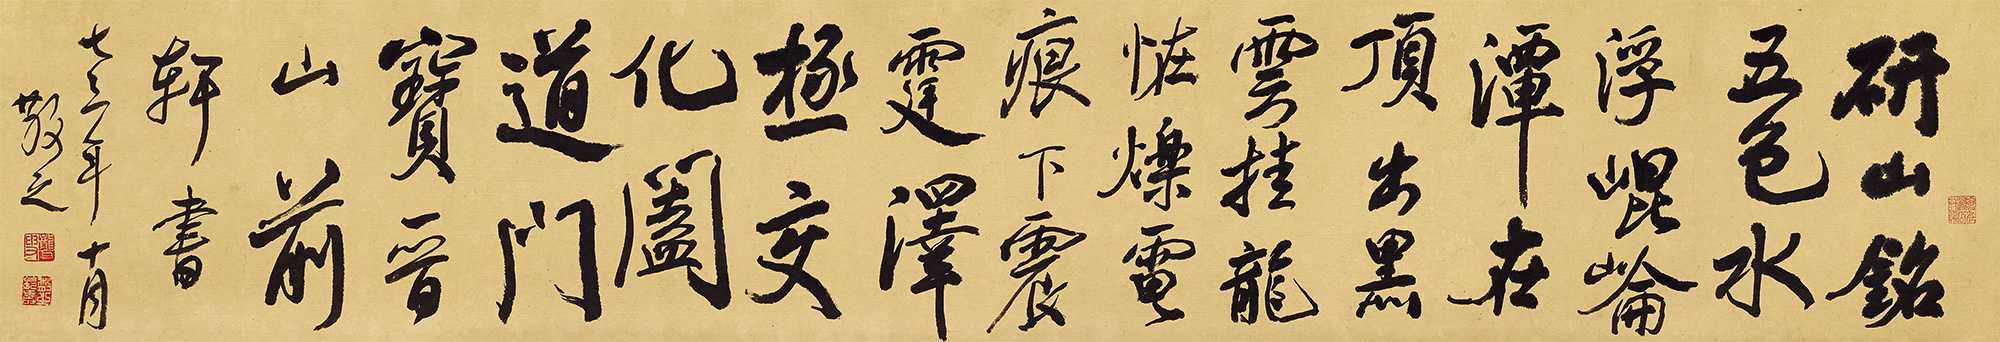 研山銘
五色水
浮崐崘
潭在
頂出黑
雲挂龍
恠爍電
痕下震
霆澤
極交
化闔
道門
寶晉
山前
軒書
七三年十月
敬之